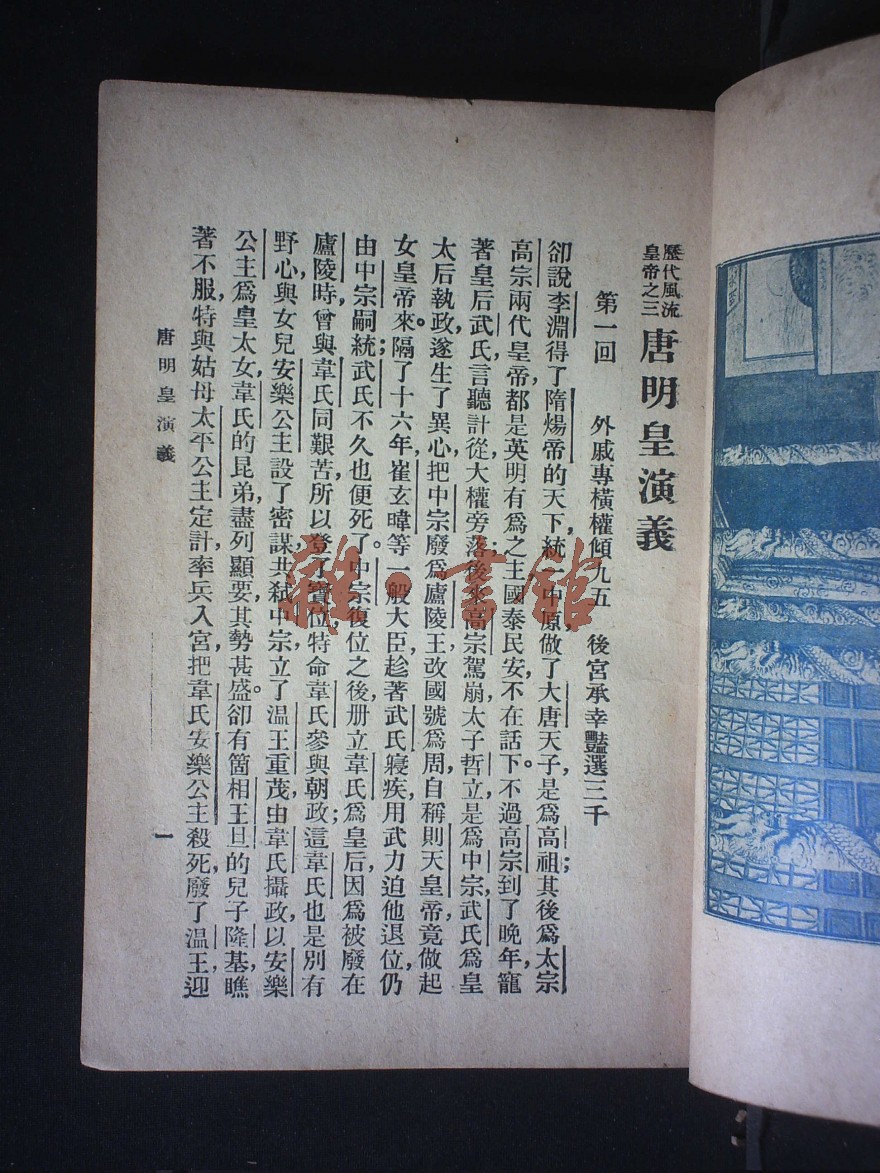 歷代風流
皇帝之三
唐明皇演義
第一回 外戚專橫權傾九五 後宮承幸豔選三千
卻說李淵得了隋煬帝的天下,統一中原,做了大唐天子,是爲高祖;其後爲太宗
高宗兩代皇帝,都是英明有爲之主,國泰民安,不在話下。不過高宗到了晚年,寵
著皇后武氏,言聽計從,大權旁落;後來高宗駕崩,太子哲立,是爲中宗,武氏爲皇
太后執政,遂生了異心,把中宗廢爲廬陵王,改國號爲周,自稱則天皇帝,竟做起
女皇帝來。隔了十六年,崔玄暐等一般大臣,趁著武氏寢疾,用武力迫他退位,仍
由中宗嗣統;武氏不久也便死了。中宗復位之後,册立韋氏爲皇后,因爲被廢在
廬陵時,曾與韋氏同艱苦,所以登了寶位,特命韋氏參與朝政;這韋氏也是別有
野心,與女兒安樂公主設了密謀,共弒中宗,立了温王重茂,由韋氏攝政,以安樂
公主爲皇太女,韋氏的昆弟,盡列顯要,其勢甚盛。卻有箇相王旦的兒子隆基,瞧
著不服,特與姑母太平公主定計,率兵入宮,把韋氏安樂公主殺死,廢了温王,迎
唐明皇演義
一
雜·書館